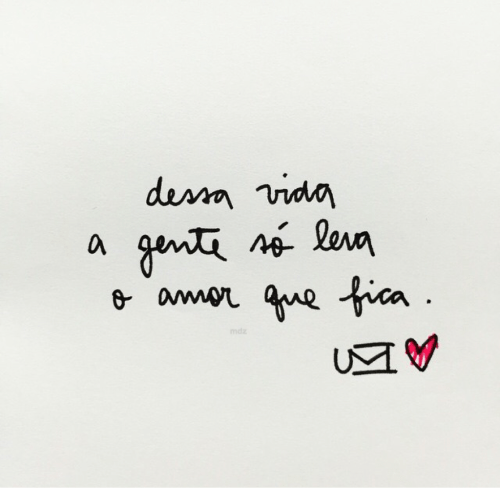 dessa vida
a gente só leva
o amor que fica.